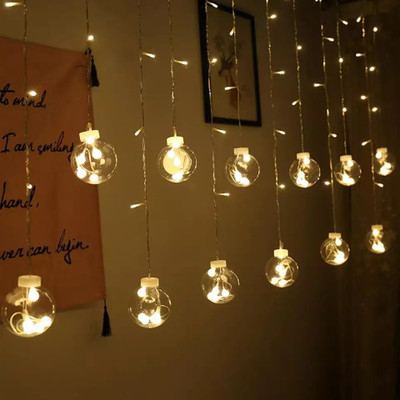 to mind,
I am smiling
hand,
ever can begin.